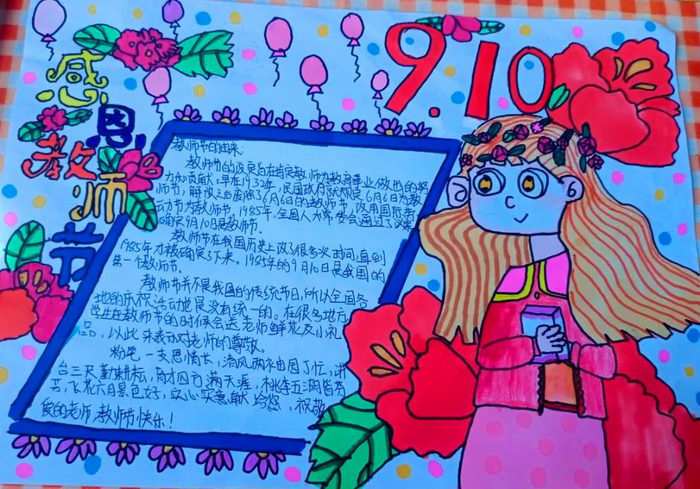 感恩教师节
9.10
教师节的由来
教师节的设定旨在肯定教师为教育事业做出的贡献
早在1932年,民国政府
6月6日为教师节,解放之后废除了6月6日的教师节,改用国际劳
动节为教师节,1985年,全国人大常委会通过了
确定9月10日是教师节。
教师节在我国历史上改了很多次时间,直到
1985年才被确定下来。1985年的9月10日是我国的
第一个教师节。
教师节并不是我国的传统节日,所以全国各
地的庆祝活动也是没有统一的。在很多地方
学生在教师节的时候会送老师鲜花及小礼
品,以此来表示对老师的尊敬。
粉笔一支思情长,清风两袖
了忙,讲
台三尺勤耕耘,育才四方满天涯,桃李五洲皆芬
芳,飞花六月景色好,
心实意献给您,祝敬
爱的老师教师节快乐!